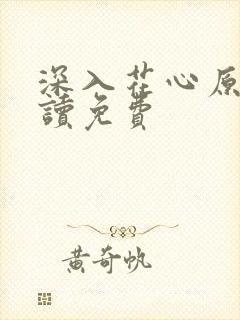 深入花心原
讀免費
黃奇帆